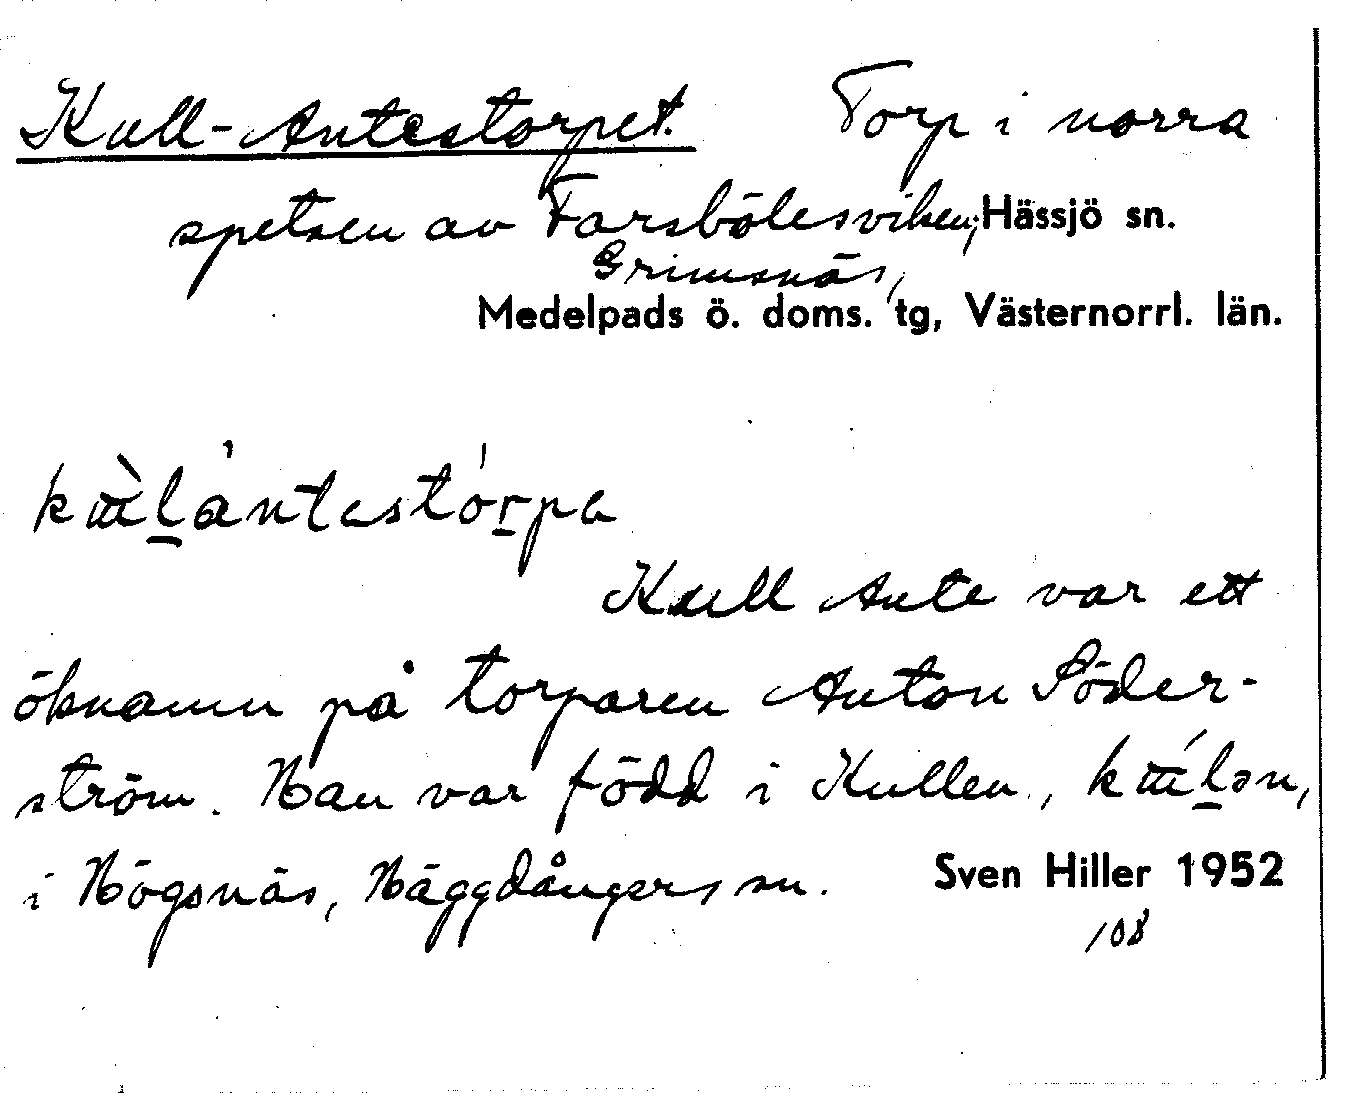 Kull-Antestorpet. Torp i norra
spetsen av Farsbölesviken, Hässjö sn.
Grimsnäs,
Medelpads ö. doms. tg, Västernorrl. län.
Kull Ante var ett
öknamn på torparen Anton Söder-
ström. Han var född i Kullen,
i Högsnäs, Häggdångers sn. Sven Hiller 1952
108